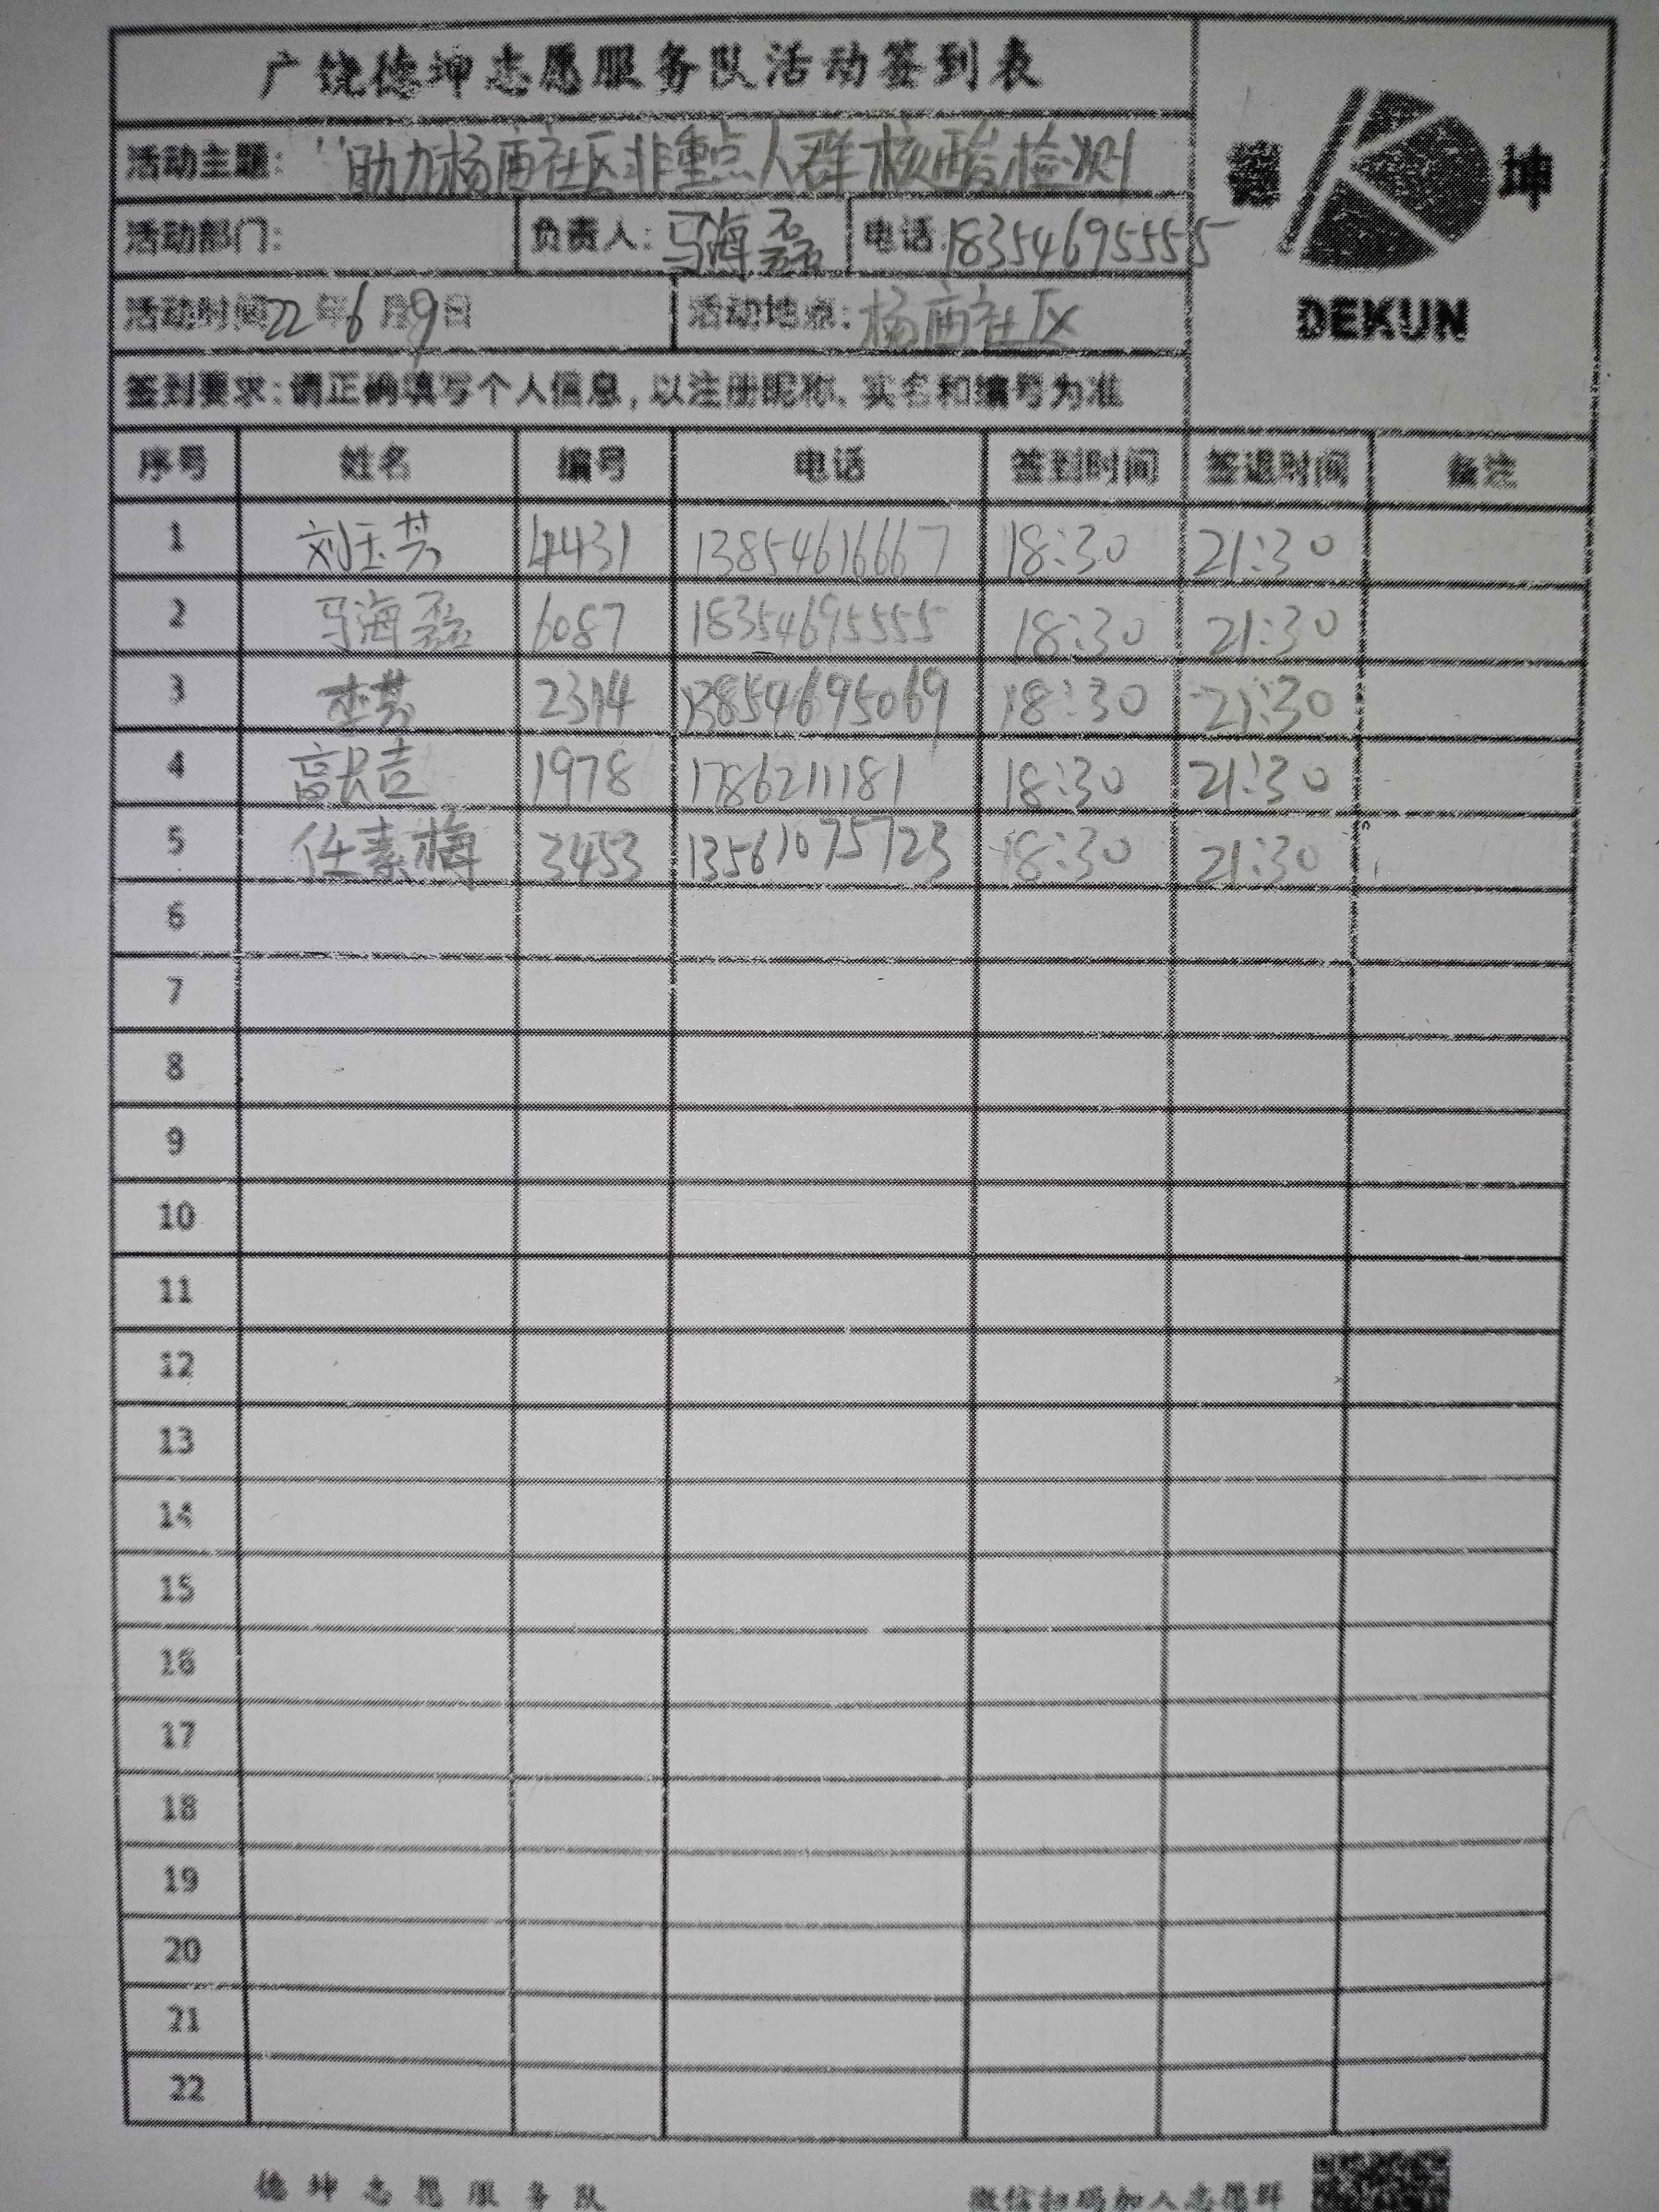 广饶德坤志愿服务队活动签到表
德 坤
DEKUN
活动主题: "助力杨庙社区非重点人群核酸检测
活动部门: 负责人: 马海磊 电话: 18354695555
活动时间 22 年 6 月 9 日 活动地点: 杨庙社区
签到要求: 请正确填写个人信息, 以注册昵称、实名和编号为准
序号 姓名 编号 电话 签到时间 签退时间 备注
1 刘玉芳 4431 13854616667 18:30 21:30
2 马海磊 6087 18354695555 18:30 21:30
3 李芳 2314 13854695069 18:30 21:30
4 高长吉 1978 1786211181 18:30 21:30
5 任素梅 3453 13561075723 18:30 21:30
6
7
8
9
10
11
12
13
14
15
16
17
18
19
20
21
22
德坤志愿服务队 微信扫码加入志愿群